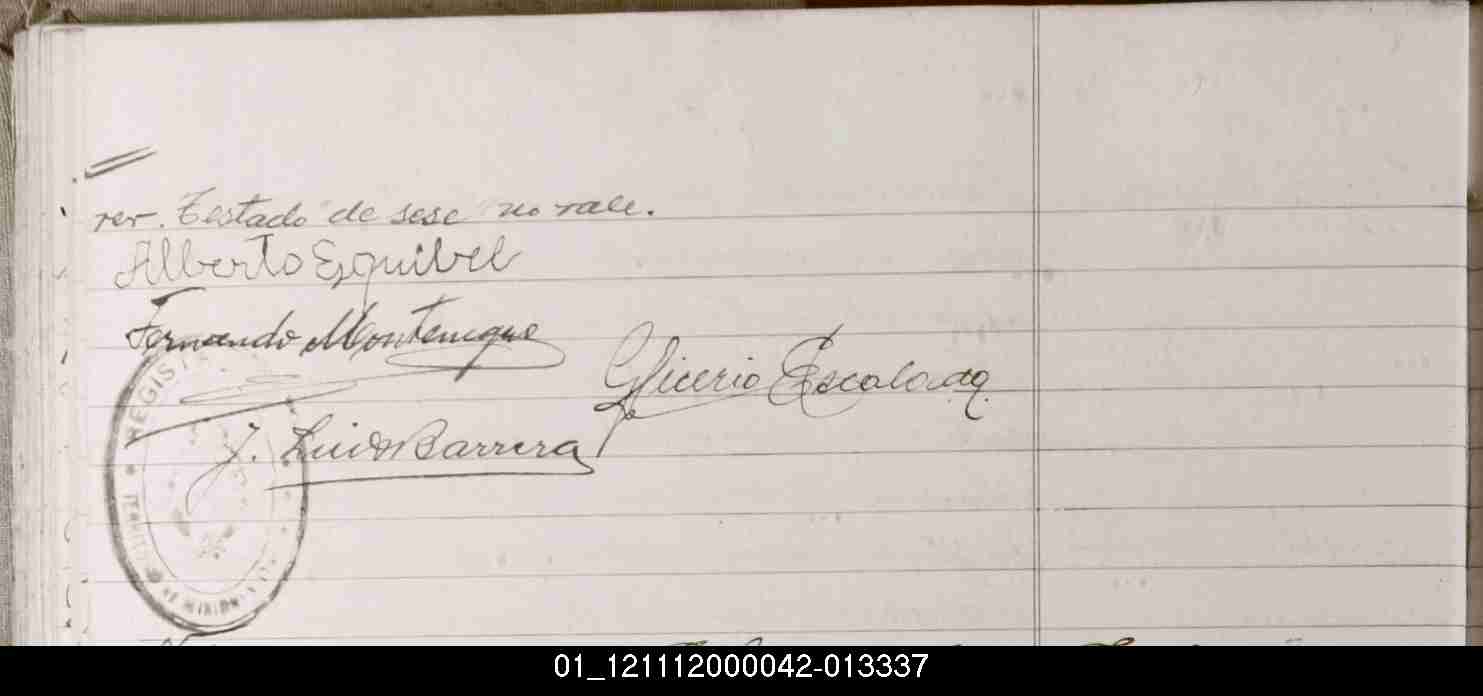 rer. Testado de sese no vale.
Alberto Esquibel
Fernando Montenegro
Glicerio Escalada
J. Luis Barrera
REGIST
01_121112000042-013337